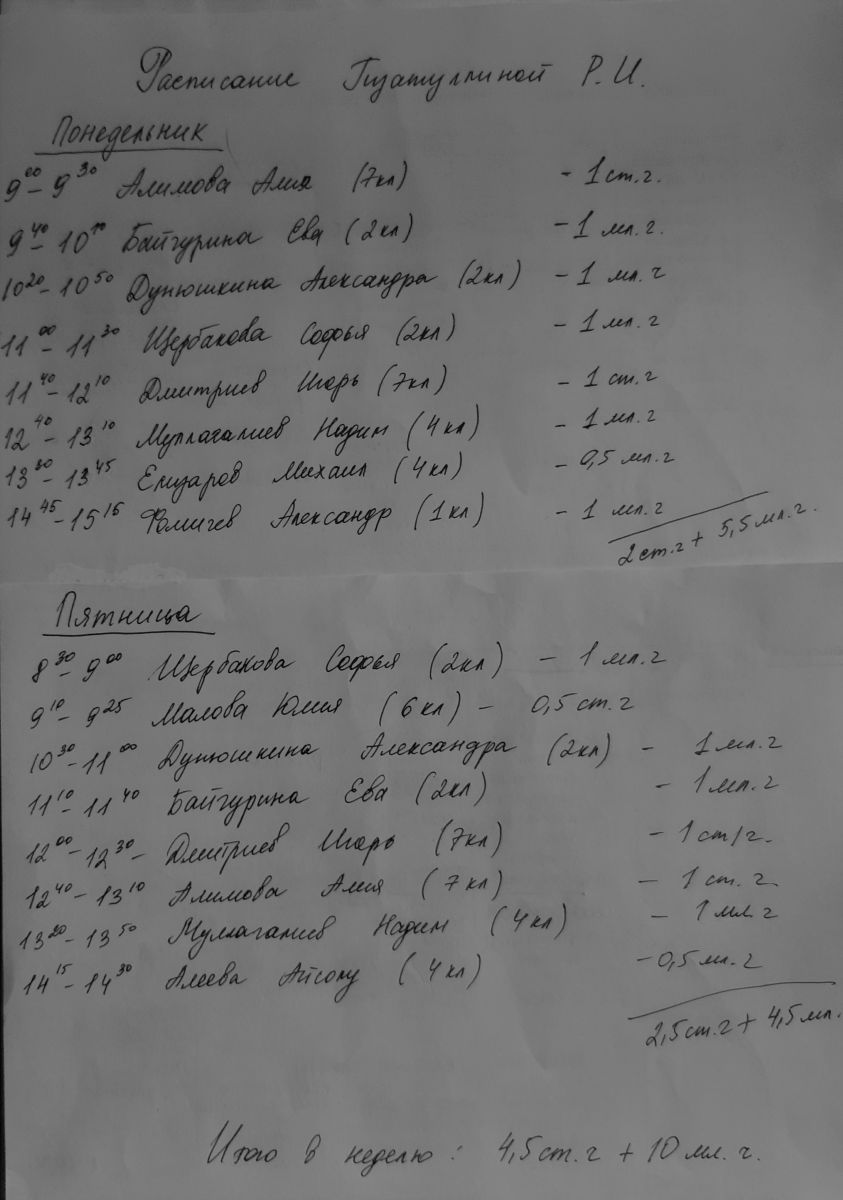 Расписание Гизатуллиной Р. И.
Понедельник
9⁰⁰ - 9³⁰ Алимова Алия (7кл) - 1 ст. г.
9⁴⁰ - 10¹⁰ Байгурина Ева (2кл) - 1 мл. г.
10²⁰ - 10⁵⁰ Дунюшкина Александра (2кл) - 1 мл. г
11⁰⁰ - 11³⁰ Щербакова Софья (2кл) - 1 мл. г
11⁴⁰ - 12¹⁰ Дмитриев Игорь (7кл) - 1 ст. г
12⁴⁰ - 13¹⁰ Муллагалиев Надим (4кл) - 1 мл. г
13³⁰ - 13⁴⁵ Елизаров Михаил (4кл) - 0,5 мл. г
14⁴⁵ - 15¹⁵ Фомичев Александр (1кл) - 1 мл. г
2 ст. г + 5,5 мл. г.
Пятница
8³⁰ - 9⁰⁰ Щербакова Софья (2кл) - 1 мл. г
9¹⁰ - 9²⁵ Малова Юлия (6кл) - 0,5 ст. г
10³⁰ - 11⁰⁰ Дунюшкина Александра (2кл) - 1 мл. г
11¹⁰ - 11⁴⁰ Байгурина Ева (2кл) - 1 мл. г
12⁰⁰ - 12³⁰ - Дмитриев Игорь (7кл) - 1 ст/г.
12⁴⁰ - 13¹⁰ Алимова Алия (7кл) - 1 ст. г.
13²⁰ - 13⁵⁰ Муллагалиев Надим (4кл) - 1 мл. г
14¹⁵ - 14³⁰ Алеева Айсылу (4кл) - 0,5 мл. г
2,5 ст. г + 4,5 мл.
Итого в неделю : 4,5 ст. г + 10 мл. г.